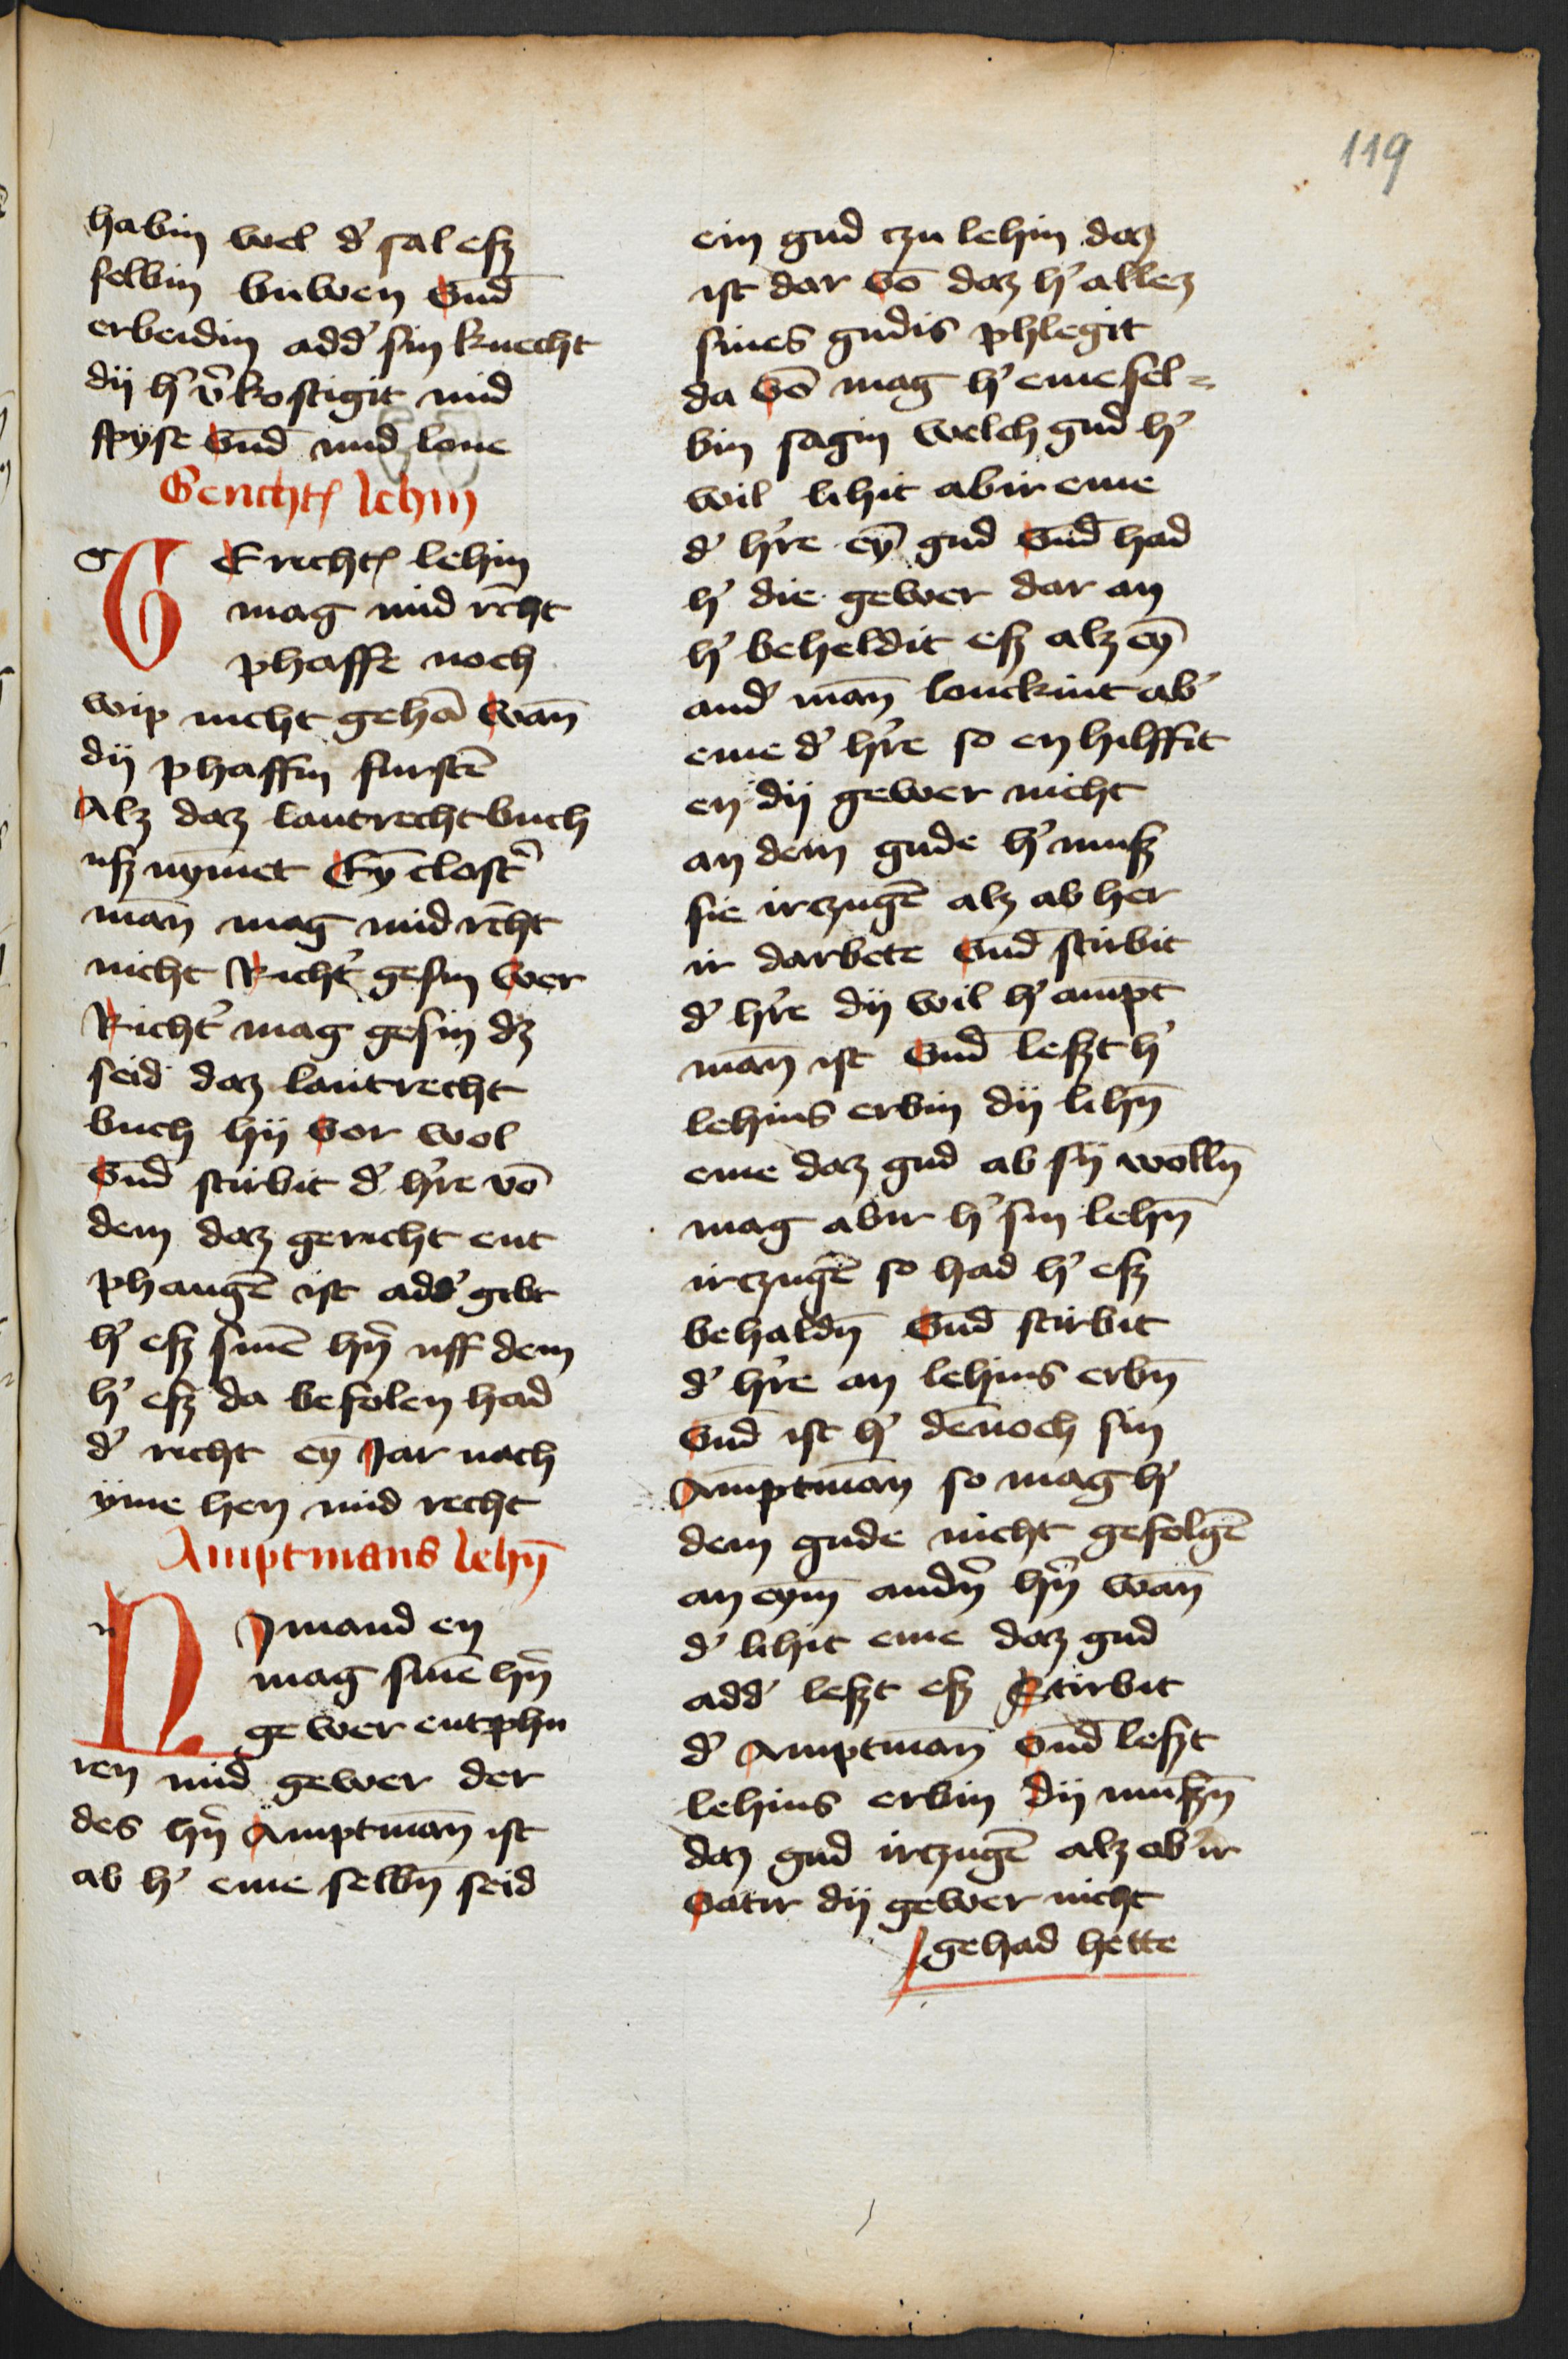 119
habin wel d' sal esz
selbin buwen vnd̄
erbeidin add' sin knecht
dij h' v̄kostigit mid
spyse vnd̄ mid lone
Gerichtꝭ lehin
g GErichtꝭ lehin
mag mid rēcht
phaffe noch
wip nicht gehā wan̄
dij phaffin furstē
Alz daz lantrechtbuch
usz nȳmet Eȳ clost'
man̄ mag mid rēcht
nicht Richt' gesin wer
Richt' mag gesin dz
seid daz lantrecht
buch hij vor wol
vnd̄ stirbit d' h're vō
dem daz gericht ent
phangē ist add' gebt
h' esz sinē hn̄ uff dem
h' esz da befolen had
d' richt eȳ Jar nach
yme hen mid recht
Amptmans lehn̄
n NJmand en
mag sinē hn̄
gewer entphu
ren mid gewer der
des hn̄ Amptman̄ ist
ab h' eme selbn̄ seid
ein gud czu lehin daz
ist dar vō daz h' allez
sines gudis phlegit
da vō mag h' eme sel=
bin sagin welch gud h'
wil lihit abir eme
d' h're eȳ gud vnd̄ had
h' die gewer dar an
h' beheldit esz alz eȳ
and' man̄ louckint ab'
eme d' h're so en hilffit
en dij gewer nicht
an dem gude h' musz
sie irczugē alz ab her
ir darbete vnd̄ stirbit
d' h're dij wil h' ampt
man̄ ist vnd̄ leszt h'
lehins erbin dij lihn̄
eme daz gud ab sij wolln̄
mag abir h' sin lehn̄
irczugē so had h' esz
behaldn̄ vnd̄ stirbit
d' h're an lehins erbn̄
vnd̄ ist h' den̄och sin
Amptman̄ so mag h'
dem gude nicht gefolgē
an eym̄ andn̄ hn̄ wan̄
d' lihit eme daz gud
add' leszt esz Stirbit
d' Amptman̄ vnd̄ leszt
lehins erbin dij muszn̄
daz gud irczugē alz ab ir
vatir dij gewer nicht
gehad hette